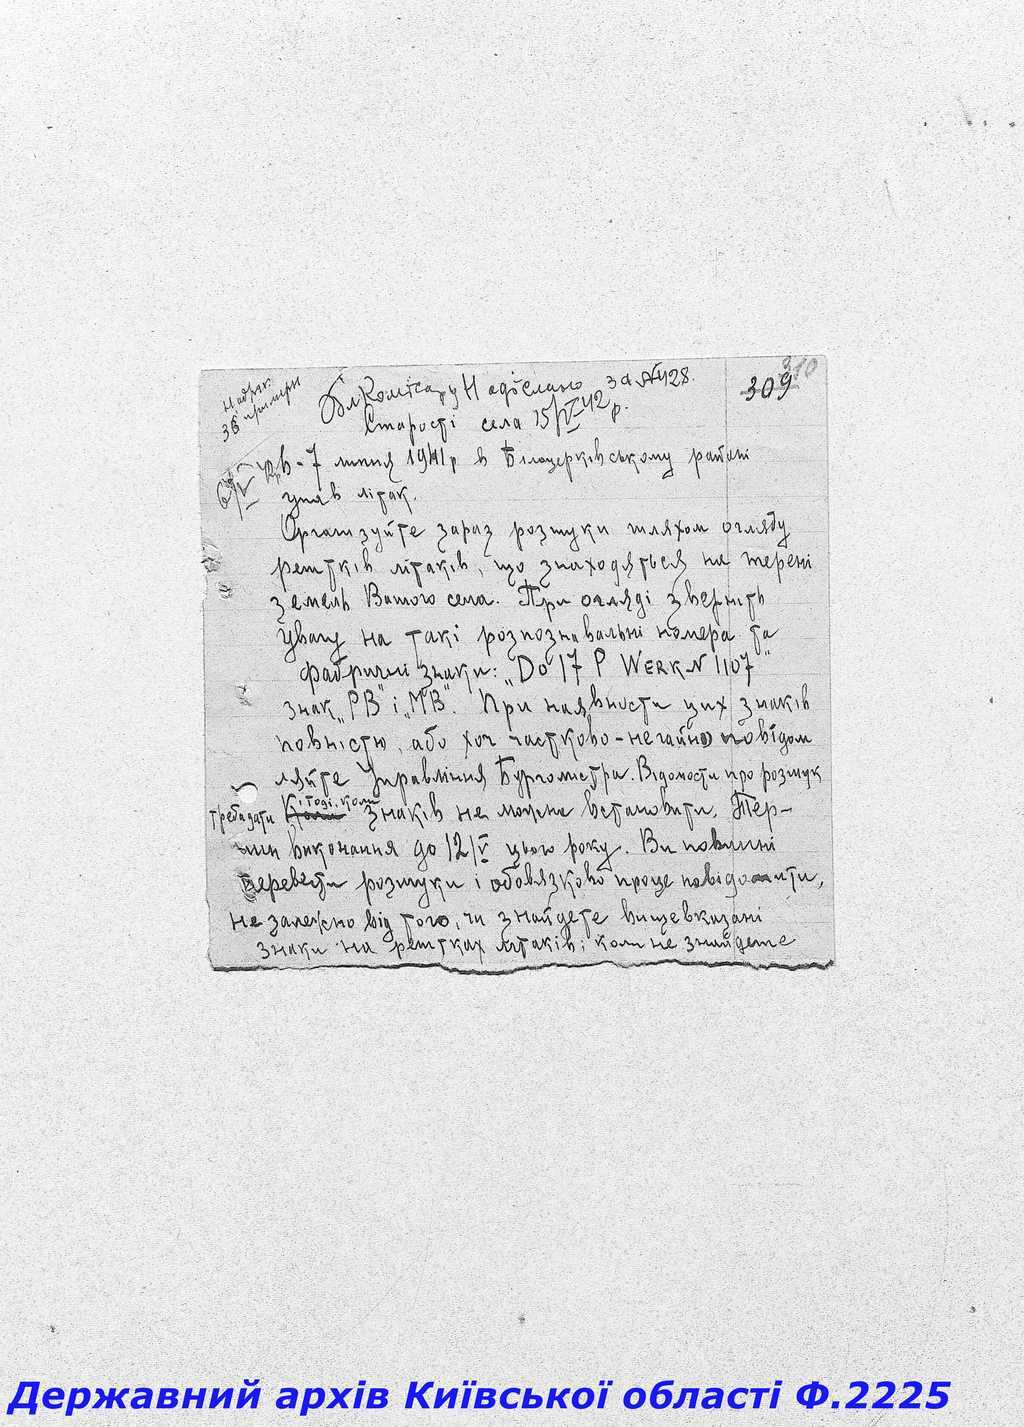 309
310
Надрук
36 примірн
Бл. Комісару Надіслано за № 428.
Старості села 15/IV 42 р.
6-7 липня 1941 р в Білоцерківському районі
упав літак.
Організуйте зараз розшуки шляхом огляду
рештків літаків, що знаходяться на терені
земель Вашого села. При огляді зверніть
увагу на такі розпознавальні номера та
фабричні знаки: „Do 17 P WERK N 1107"
знак „РВ" і „МВ". При наявности цих знаків
повністю, або хоч частково - негайно повідом
ляйте Управління Бургомістра. Відомости про розшук
треба дати і тоді, коли знаків не можна встановити. Тер-
мін виконання до 12/V цього року. Ви повинні
перевести розшуки і обовязково проце повідомити,
не залежно від того, чи знайдете вищевказані
знаки на рештках літаків; коли не знайдете
Державний архів Київської області Ф.2225